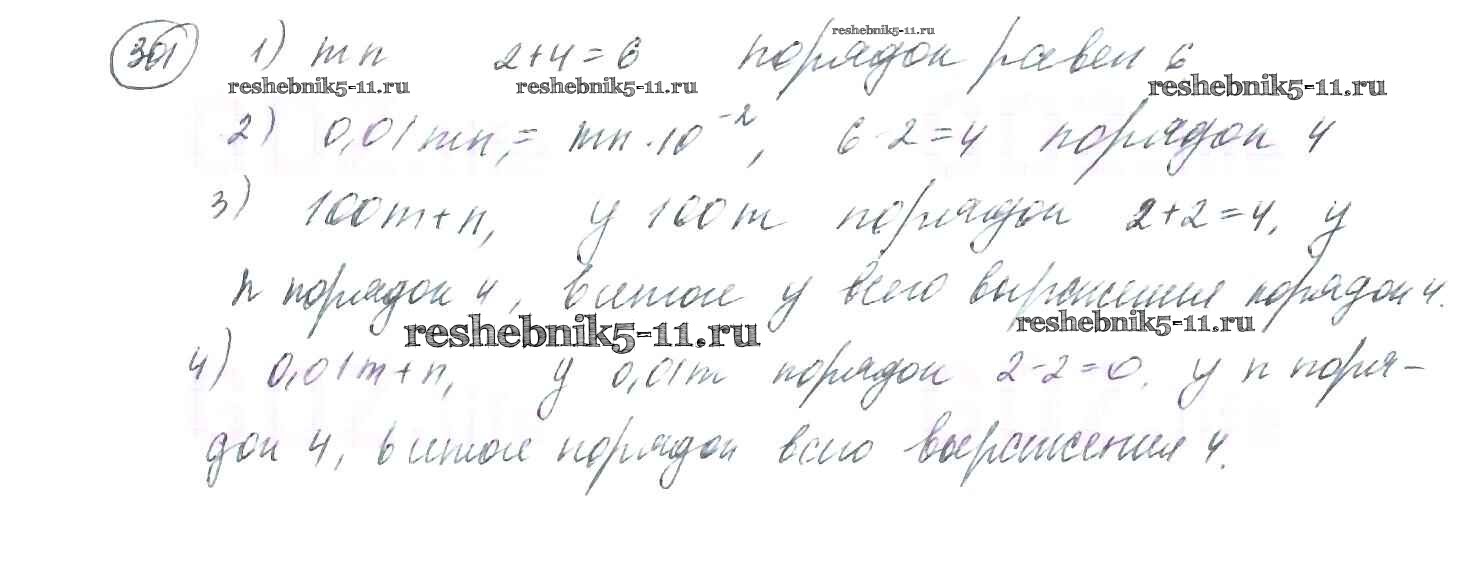 reshebnik5-11.ru
361 1) mn 2+4=6 порядок равен 6
reshebnik5-11.ru reshebnik5-11.ru reshebnik5-11.ru
2) 0,01mn, = mn·10⁻², 6-2=4 порядок 4
3) 100m+n, у 100m порядок 2+2=4, у
n порядок 4, в итоге у всего выражения порядок 4.
reshebnik5-11.ru reshebnik5-11.ru
4) 0,01m+n, у 0,01m порядок 2-2=0. у n поря-
док 4, в итоге порядок всего выражения 4.